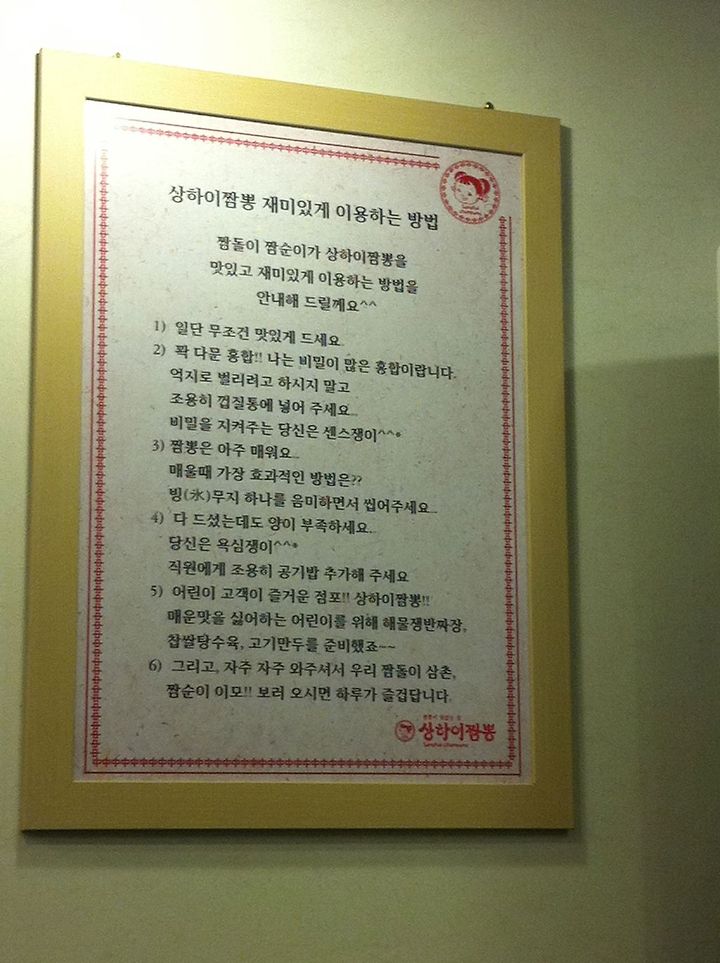 상하이짬뽕 재미있게 이용하는 방법
짬돌이 짬순이가 상하이짬뽕을
맛있고 재미있게 이용하는 방법을
안내해 드릴께요^^
1) 일단 무조건 맛있게 드세요.
2) 꽉 다문 홍합!! 나는 비밀이 많은 홍합이랍니다.
억지로 벌리려고 하시지 말고
조용히 껍질통에 넣어 주세요...
비밀을 지켜주는 당신은 센스쟁이^^*
3) 짬뽕은 아주 매워요...
매울때 가장 효과적인 방법은??
빙(氷)무지 하나를 음미하면서 씹어주세요...
4) 다 드셨는데도 양이 부족하세요...
당신은 욕심쟁이^^*
직원에게 조용히 공기밥 추가해 주세요
5) 어린이 고객이 즐거운 점포!! 상하이짬뽕!!
매운맛을 싫어하는 어린이를 위해 해물쟁반짜장,
찹쌀탕수육, 고기만두를 준비했죠~~
6) 그리고, 자주 자주 와주셔서 우리 짬돌이 삼촌,
짬순이 이모!! 보러 오시면 하루가 즐겁답니다.
상하이짬뽕